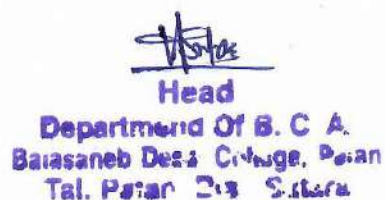 Head
Department Of B. C. A.
Balasaheb Desai College, Patan
Tal. Patan Dis Satara